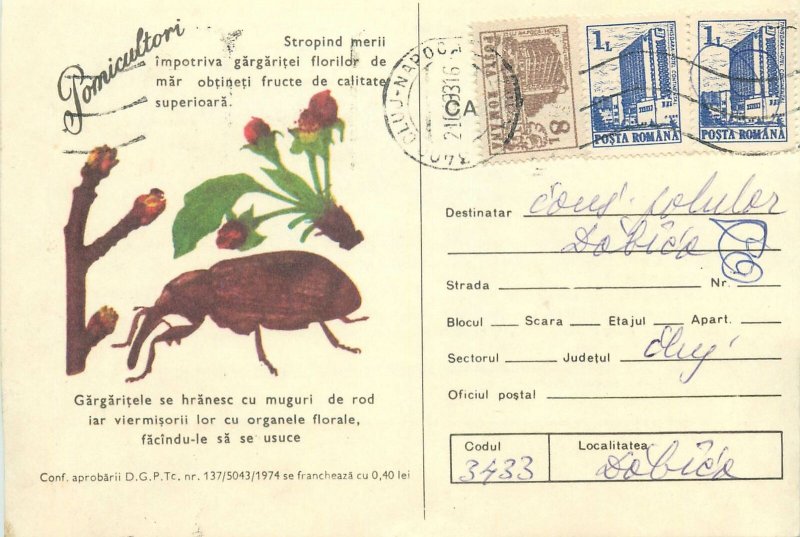 Pomicultori
Stropind merii
împotriva gărgăriței florilor de
măr obțineți fructe de calitate
superioară.
Gărgărițele se hrănesc cu muguri de rod
iar viermișorii lor cu organele florale,
făcîndu-le să se usuce
Conf. aprobării D.G.P.Tc. nr. 137/5043/1974 se franchează cu 0,40 lei
CLUJ-NAPOCA
CA
8L
POȘTA ROMÂNA
1L
POȘTA ROMÂNA
1L
POȘTA ROMÂNA
Destinatar
Dobîca
Strada Nr.
Blocul Scara Etajul Apart.
Sectorul Județul Cluj
Oficiul poștal
Codul Localitatea
3433 Dobîca